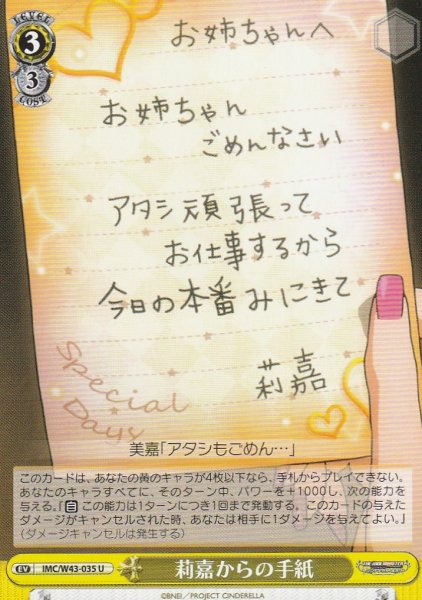 LEVEL
3
3
COST
お姉ちゃんへ
お姉ちゃん
ごめんなさい
アタシ頑張って
お仕事するから
今日の本番みにきて
莉嘉
Special
Days
美嘉「アタシもごめん…」
このカードは、あなたの黄のキャラが4枚以下なら、手札からプレイできない。
あなたのキャラすべてに、そのターン中、パワーを+1000し、次の能力を与える。『自 この能力は1ターンにつき1回まで発動する。 このカードの与えたダメージがキャンセルされた時、あなたは相手に1ダメージを与える。』
(ダメージキャンセルは発生する)
EV IMC/W43-035 U
莉嘉からの手紙
©BNEI／PROJECT CINDERELLA